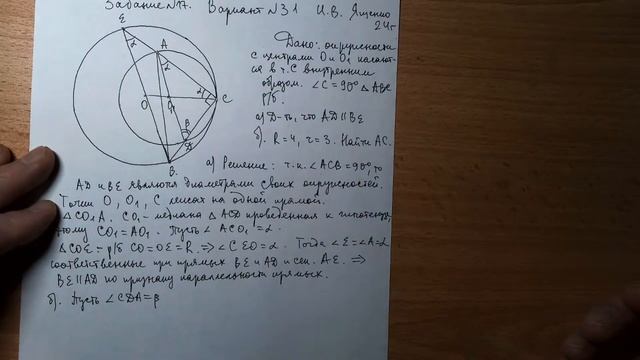 Задание №17. Вариант №31 И.В. Ященко
24г
Дано: окружности
с центрами O и O₁ касают-
ся в т. C внутренним
образом. ∠C = 90° △ABC
р/б.
а) Д-ть, что AD ∥ BE
б). R = 4, r = 3. Найти AC.
E
α
A
α
O
O₁
α
C
β
D
B
а) Решение: т.к. ∠ACB = 90°, то
AD и BE являются диаметрами своих окружностей.
Точки O, O₁, C лежат на одной прямой.
△CO₁A. CO₁ - медиана △ACD проведенная к гипотенузе,
поэтому CO₁ = AO₁. Пусть ∠ACO₁ = α.
△COE = р/б CO = OE = R. ⇒ ∠CEO = α. Тогда ∠E = ∠A = α
соответственные при прямых BE и AD и сек. AE. ⇒
BE ∥ AD по признаку параллельности прямых.
б). Пусть ∠CDA = β